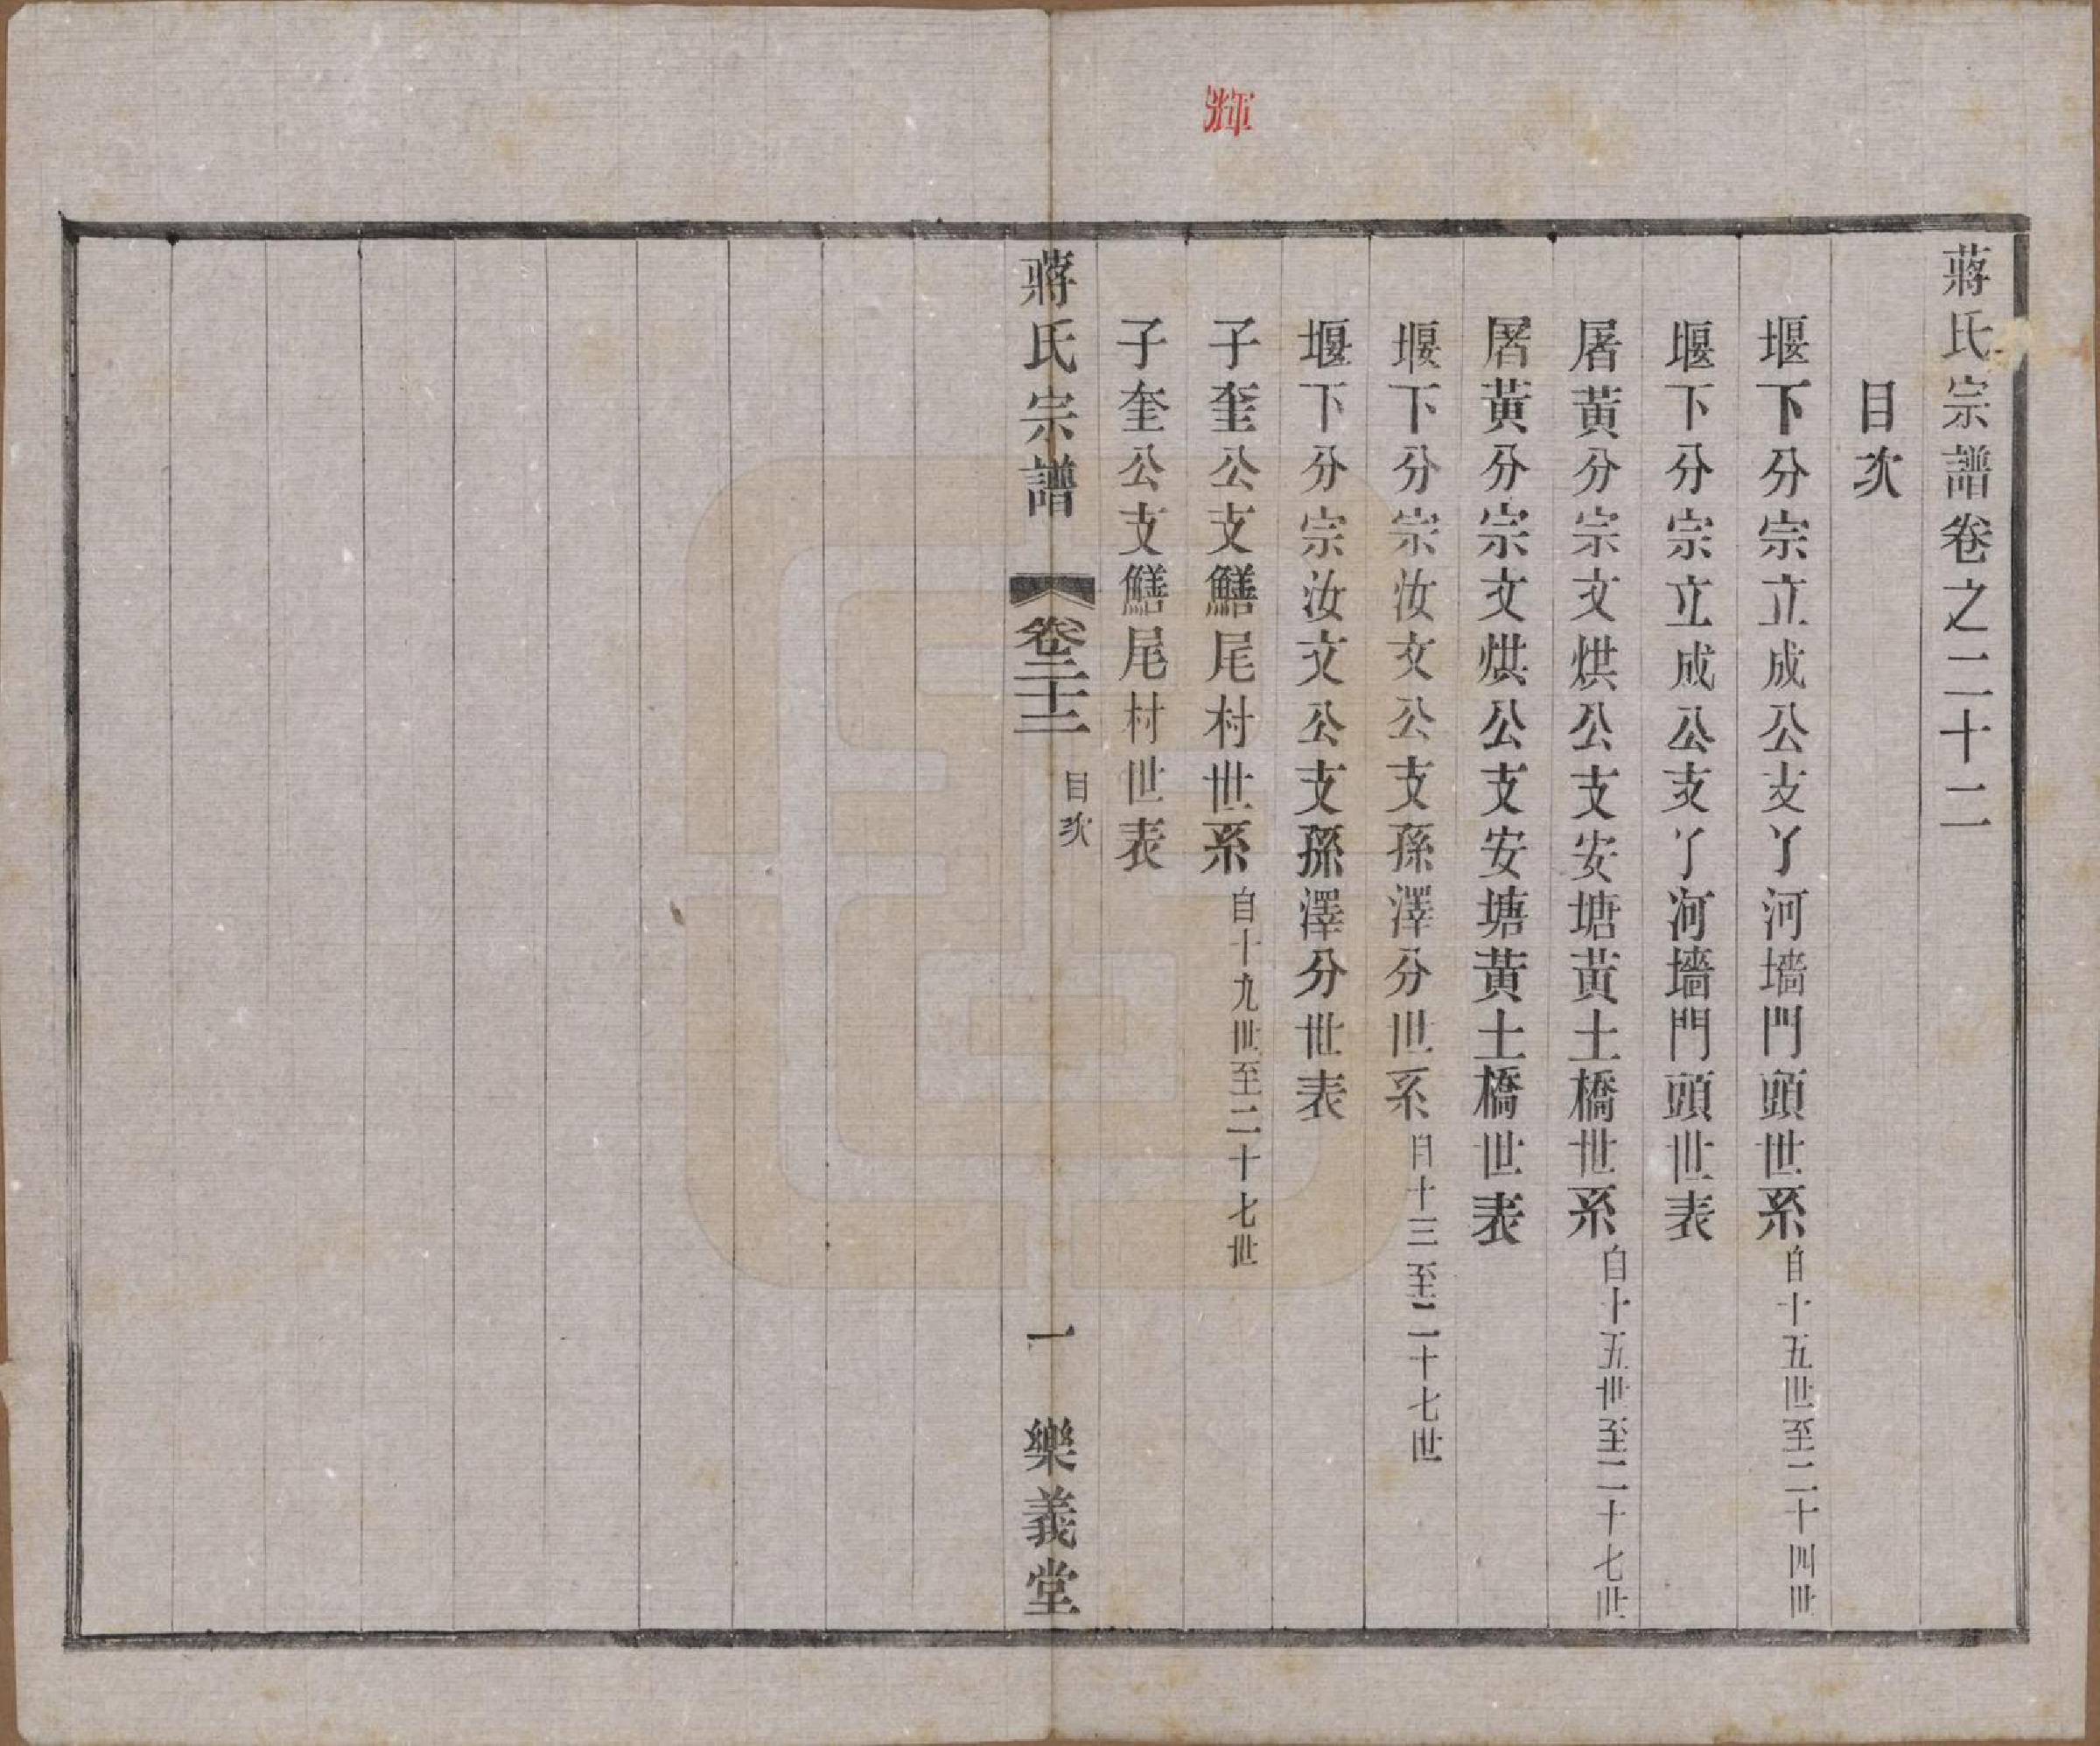 輝
蔣氏宗譜卷之二十二
目次
堰下分宗立成公支丫河墻門頭世系自十五世至二十四世
堰下分宗立成公支丫河墻門頭世表
屠黃分宗文烘公支安塘黃土橋世系自十五世至二十七世
屠黃分宗文烘公支安塘黃土橋世表
堰下分宗汝文公支孫澤分世系自十三至二十七世
堰下分宗汝文公支孫澤分世表
子奎公支鱔尾村世系自十九世至二十七世
子奎公支鱔尾村世表
蔣氏宗譜 卷二十二 目次 一 樂義堂